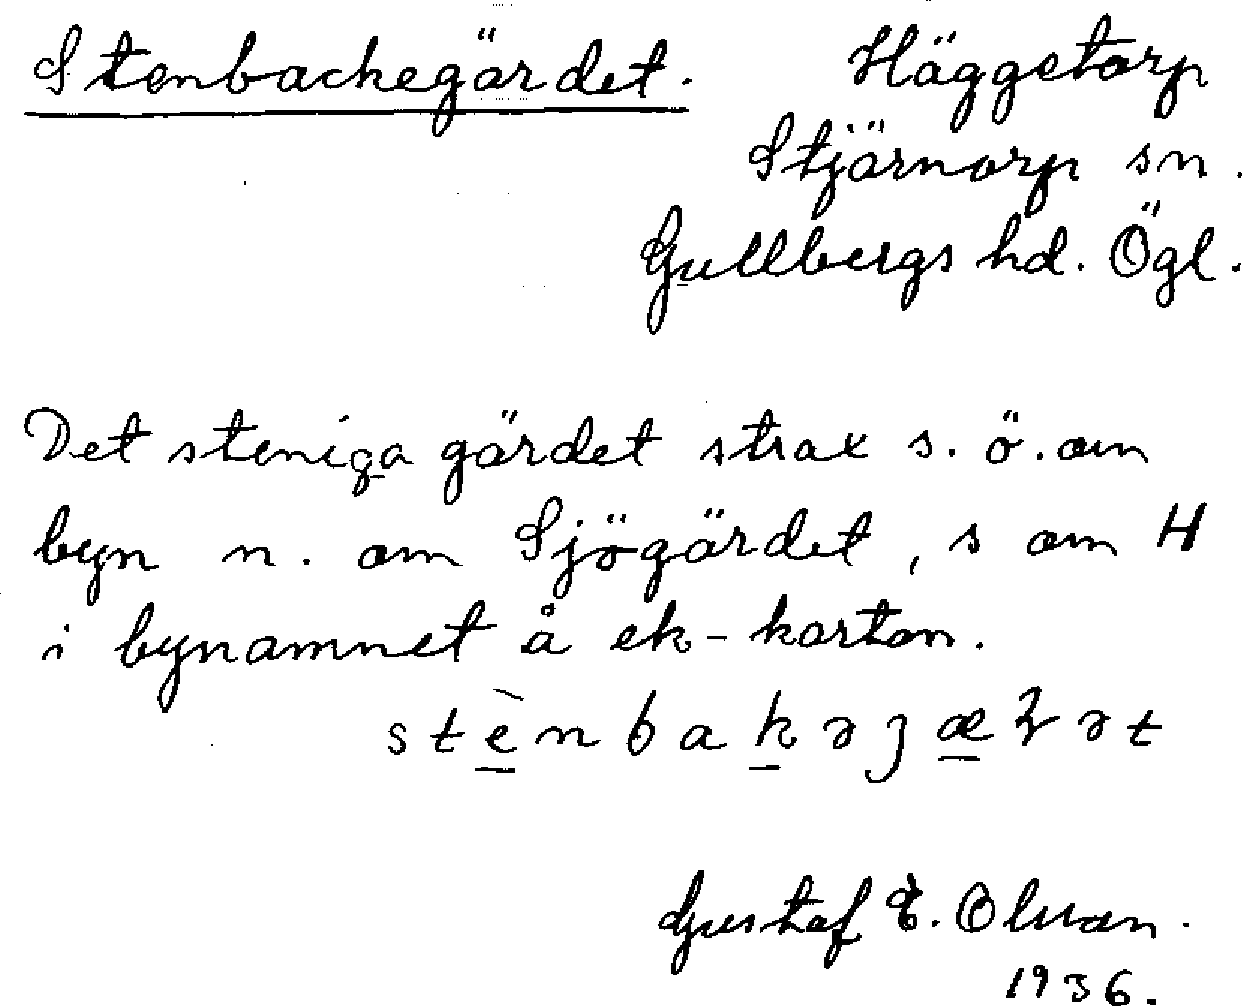 Stenbackegärdet. Häggetorp
Stjärnorp sn.
Gullbergs hd. Ögl.
Det steniga gärdet strax s. ö. om
byn n. om Sjögärdet, s om H
i bynamnet å ek-kartan.
Gustaf E. Olsson.
1936.